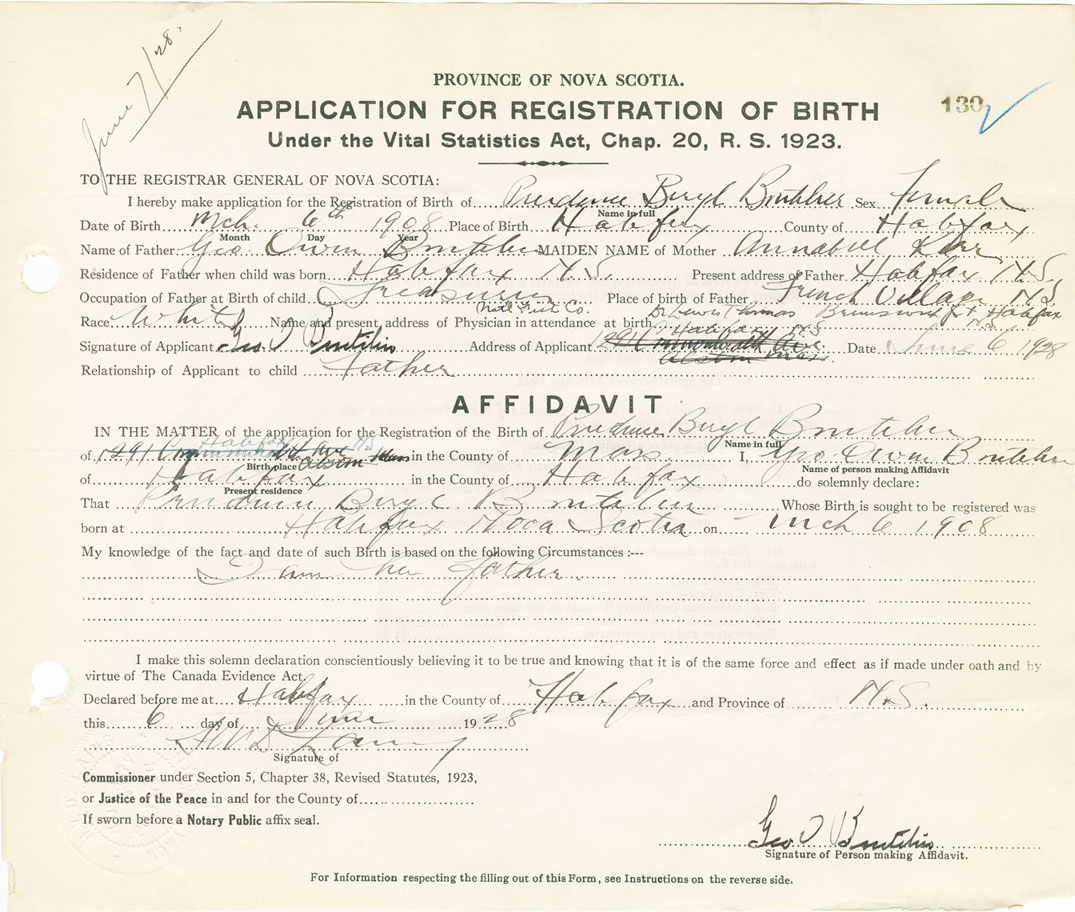 June 7/28.
PROVINCE OF NOVA SCOTIA.
APPLICATION FOR REGISTRATION OF BIRTH
130
Under the Vital Statistics Act, Chap. 20, R. S. 1923.
TO THE REGISTRAR GENERAL OF NOVA SCOTIA:
I hereby make application for the Registration of Birth of Prudence Beryl Boutilier Sex Female
Name in full
Date of Birth Mch. 6th 1908 Place of Birth Halifax County of Halifax
Month Day Year
Name of Father Geo. Owen Boutilier MAIDEN NAME of Mother Annabell
Residence of Father when child was born Halifax N.S. Present address of Father Halifax N.S.
Occupation of Father at Birth of child Treasurer Place of birth of Father French Village N.S.
Natl Fish Co. Dr Lewis Thomas Brunswick St Halifax
Race White Name and present address of Physician in attendance at birth N.S.
Halifax N.S
Signature of Applicant Geo. O Boutilier Address of Applicant 1291 Commonwealth Ave Date June 6 1928
Allston Mass.
Relationship of Applicant to child Father
AFFIDAVIT
IN THE MATTER of the application for the Registration of the Birth of Prudence Beryl Boutilier
Name in full
Halifax N.S
of 1291 Commonwealth Ave Allston Mass in the County of Mass I, Geo. Owen Boutilier
Birth place Name of person making Affidavit
of Halifax in the County of Halifax do solemnly declare:
Present residence
That Prudence Beryl Boutilier Whose Birth is sought to be registered was
born at Halifax Nova Scotia on Mch 6 1908
My knowledge of the fact and date of such Birth is based on the following Circumstances :---
I am her father.
I make this solemn declaration conscientiously believing it to be true and knowing that it is of the same force and effect as if made under oath and by
virtue of The Canada Evidence Act.
Declared before me at Halifax in the County of Halifax and Province of N.S.
this 6 day of June 1928
Signature of
Commissioner under Section 5, Chapter 38, Revised Statutes, 1923,
or Justice of the Peace in and for the County of
If sworn before a Notary Public affix seal.
Geo O Boutilier
Signature of Person making Affidavit.
For Information respecting the filling out of this Form, see Instructions on the reverse side.